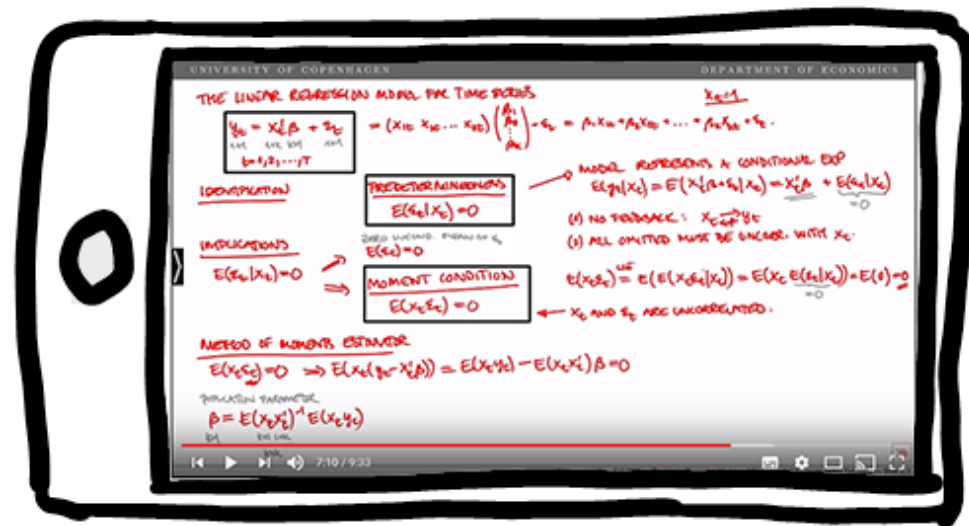 UNIVERSITY OF COPENHAGEN
DEPARTMENT OF ECONOMICS
THE LINEAR REGRESSION MODEL FOR TIME SERIES
yₜ = xₜ'β + εₜ = (x₁ₜ x₂ₜ ... xₖₜ) (β₁ β₂ ⋮ βₖ) + εₜ = β₁x₁ₜ + β₂x₂ₜ + ... + βₖxₖₜ + εₜ.
t=1,2,...,T
IDENTIFICATION
PREDETERMINEDNESS
E(εₜ|xₜ) = 0
MODEL REPRESENTS A CONDITIONAL EXP
E(yₜ|xₜ) = E(xₜ'β + εₜ|xₜ) = xₜ'β + E(εₜ|xₜ)
=0
(1) NO FEEDBACK: xₜ yₜ
(2) ALL OMITTED MUST BE UNCORR. WITH xₜ.
IMPLICATIONS
E(εₜ|xₜ) = 0
ZERO UNCOND. MEAN OF εₜ
E(εₜ) = 0
MOMENT CONDITION
E(xₜεₜ) = 0
E(xₜεₜ) = E(E(xₜεₜ|xₜ)) = E(xₜ E(εₜ|xₜ)) = E(0) = 0
=0
← xₜ AND εₜ ARE UNCORRELATED.
METHOD OF MOMENTS ESTIMATOR
E(xₜεₜ) = 0 ⇒ E(xₜ(yₜ - xₜ'β)) = E(xₜyₜ) - E(xₜxₜ')β = 0
POPULATION PARAMETER
β = E(xₜxₜ')⁻¹ E(xₜyₜ)
7:10 / 9:33